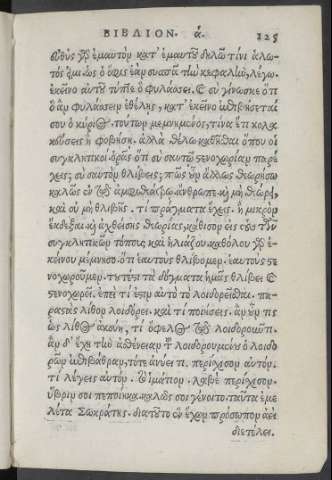 ΒΙΒΛΙΟΝ. ά. 125
εὐθὺς γὰρ ἐμαυτὸν κατ' ἐμαυτοῦ δηλῶ τίνι ἁλω-
τός εἰμι. ὡς ὁ ὄφις ἐὰν συσπᾷ τὴν κεφαλὴν, λέγω.
ἐκεῖνο αὐτοῦ τύπτε ὃ φυλάσσει. καὶ σὺ γίνωσκε ὅτι
ὃ ἂν φυλάσσειν ἐθέλῃς, κατ' ἐκεῖνο ἐπιβήσεταί
σου ὁ κύριος. τούτων μεμνημένος, τίνα ἔτι κολα
κεύσεις ἢ φοβήσῃ. ἀλλὰ θέλω καθῆσθαι ὅπου οἱ
συγκλητικοί. ὁρᾷς ὅτι σὺ σαυτῷ στενοχωρίαν παρέ
χεις; σὺ σαυτὸν θλίβεις; πῶς οὖν ἄλλως θεωρήσω
καλῶς ἐν τῷ ἀμφιθεάτρῳ. ἄνθρωπε, καὶ μὴ θεώρει,
καὶ οὐ μὴ θλιβῇς. τί πράγματα ἔχεις. ἢ μικρὸν
ἔκδεξαι, καὶ ἀχθείσης θεωρίας κάθισον εἰς τοὺς τῶν
συγκλητικῶν τόπους, καὶ ἡλιάζου. καθόλου γὰρ ἐ-
κείνου μέμνησο. ὅτι ἑαυτοὺς θλίβομεν. ἑαυτοὺς στε
νοχωροῦμεν. τουτέστι τὰ δόγματα ἡμᾶς θλίβει καὶ
στενοχωρεῖ. ἐπεὶ τί ἐστιν αὐτὸ τὸ λοιδορεῖσθαι. πα-
ραστὰς λίθον λοιδόρει. καὶ τί ποιήσεις. ἂν οὖν τις
ὡς λίθος ἀκούῃ, τί ὄφελος τῷ λοιδοροῦντι.
ἂν δ' ἔχῃ τὴν ἀσθένειαν τοῦ λοιδορουμένου ὁ λοιδο
ρῶν ἐπιβάθραν, τότε ἀνύει τι. περίσχισον αὐτόν.
τί λέγεις αὐτόν. τὸ ἱμάτιον. λάβε περίσχισον.
ὕβριν σοι πεποίηκα. καλῶς σοι γένοιτο. ταῦτα ἐμε
λέτα Σωκράτης. διὰ τοῦτο ἓν ἔχων πρόσωπον ἀεὶ
διετέλει.